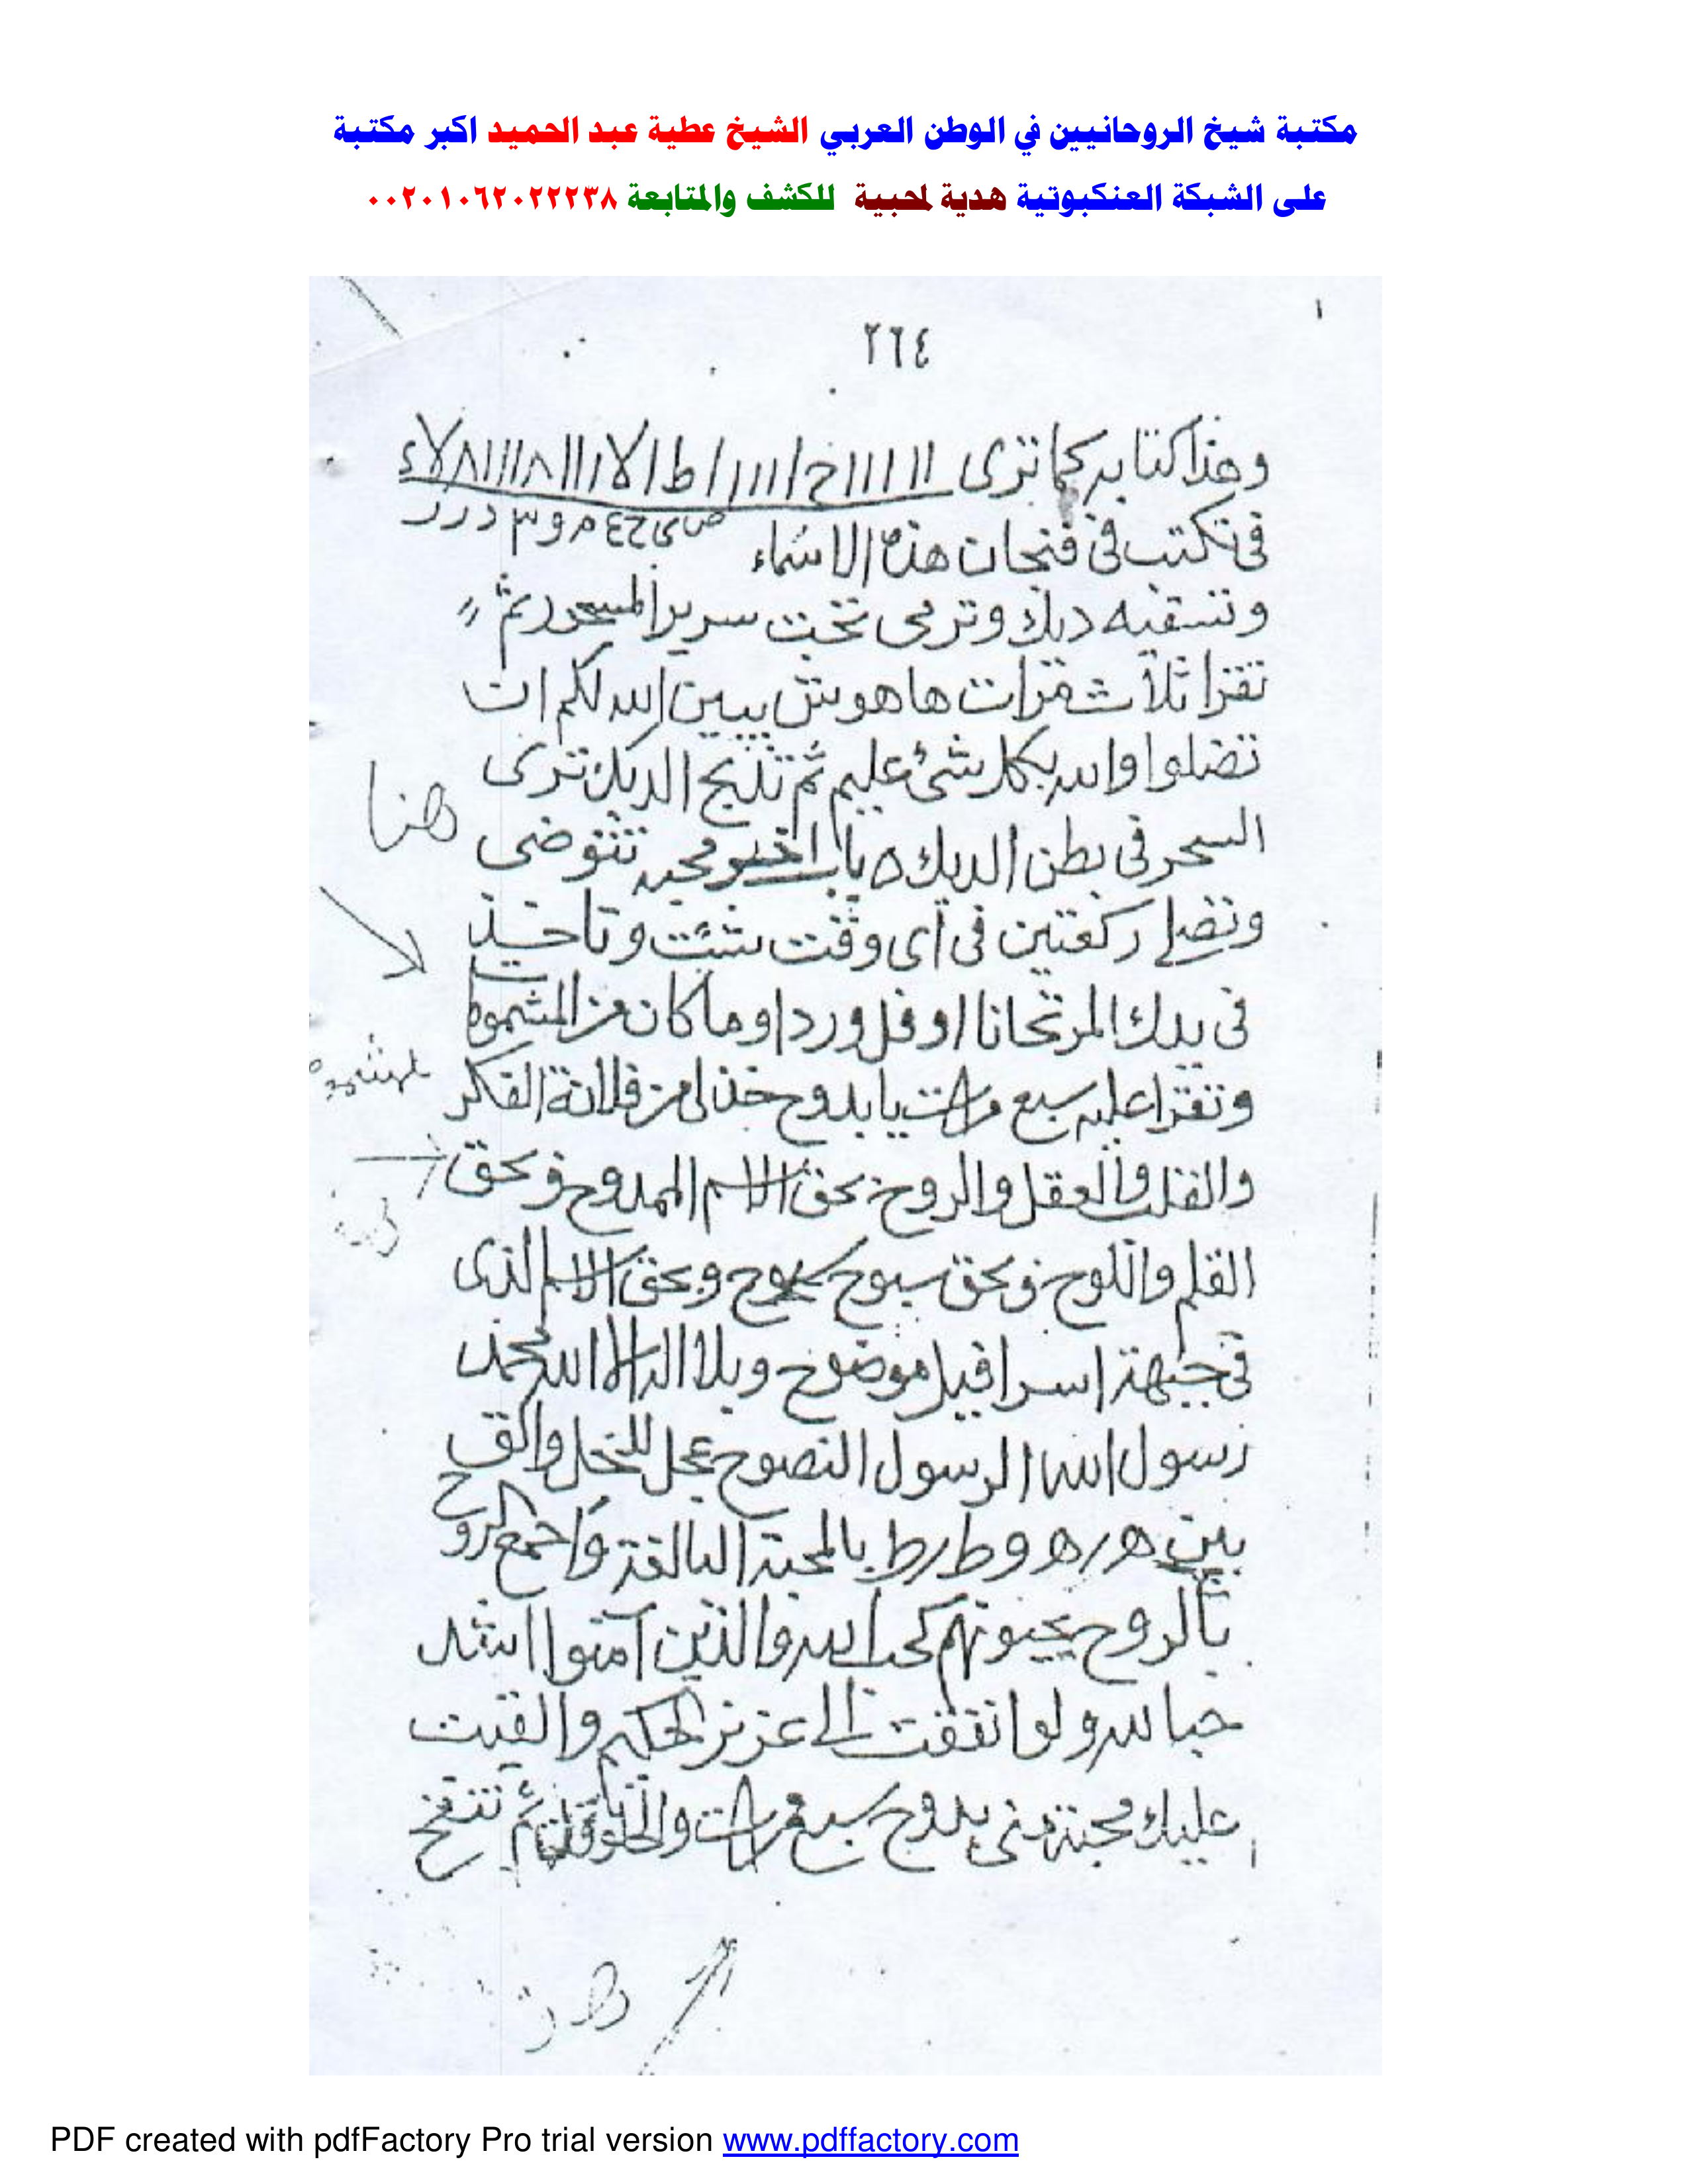 مكتبة شيخ الروحانيين في الوطن العربي الشيخ عطية عبد الحميد اكبر مكتبة
على الشبكة العنكبوتية هدية لمحبية للكشف والمتابعة ٠٠٢٠١٠٦٢٠٢٢٢٣٨
٢٦٤
وهذا كتابه كما ترى
فى تكتب فى فنجان هذه الاسماء
وتسقيه ديك وترمى تحت سرير المسحور ثم
تقرا ثلاث مرات ها هوش يبين الله لكم ان
تضلوا والله بكل شئ عليم ثم تذبح الديك ترى
السحر فى بطن الديك ٥ باب اخر محبه تتوضى
هنا
وتصلى ركعتين فى اى وقت شئت وتاخذ
فى يدك المرتحانا او فل ورد او ما كان من المشموم
وتقرا عليه سبع مرات يا بدوح خذ لى من فلانة الفكر
والقلب والعقل والروح بحق الاسم الممدوح وبحق
القلم واللوح وبحق سبوح وبحق الاسم الذى
فى جبهة اسرافيل موضوح وبلا اله الا الله محمد
رسول الله الرسول النصوح عجل للخل والق
بين ه ر ه و ط ر ط بالمحبة البالغة واجمع الروح
بالروح يحبونهم كحب الله والذين آمنوا اشد
حبا لله ولو انفقت الى عزيز الحكيم والقيت
عليك محبة منى بدوح سبع مرات ثم تنفخ
PDF created with pdfFactory Pro trial version www.pdffactory.com